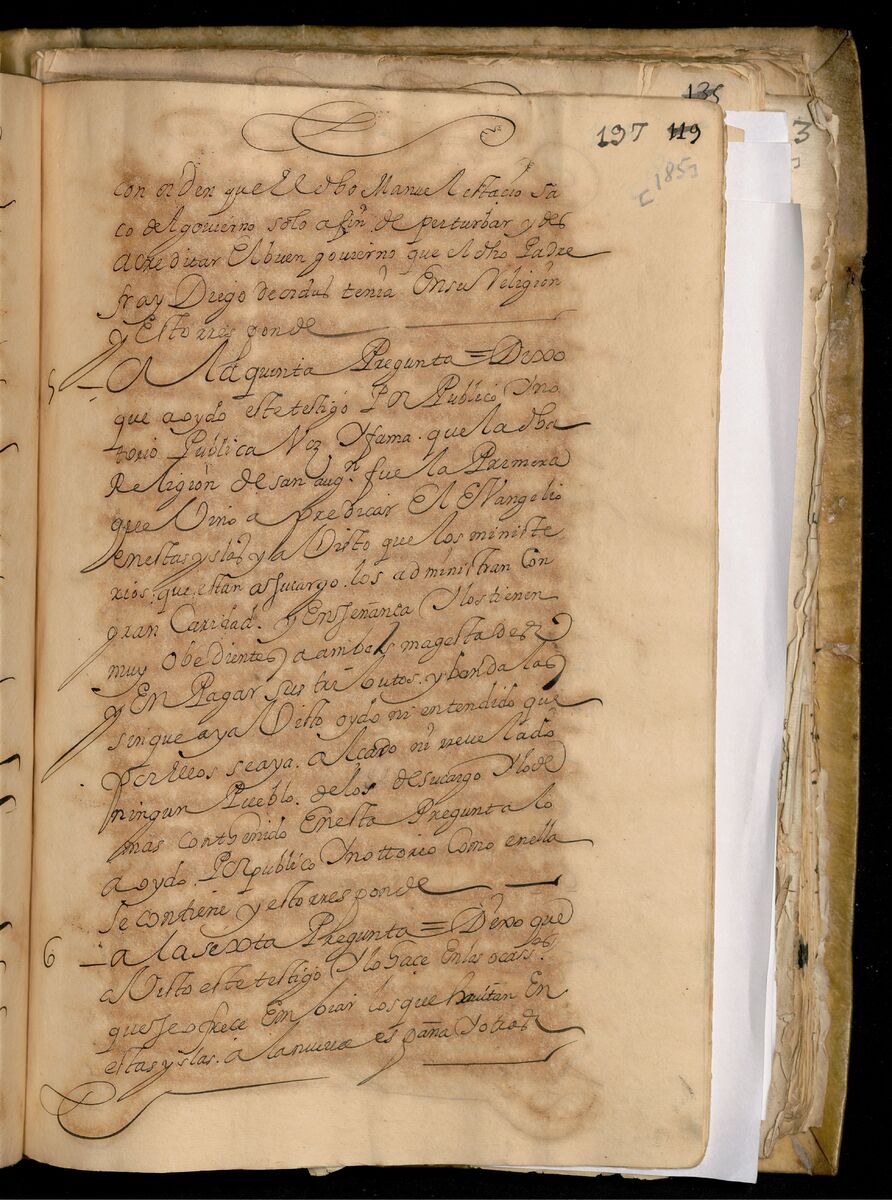 135
197 119
[185]
3
con orden que El dho Manuel estacio sa
co del govierno solo a fin de perturbar y des
acreditar El buen govierno que el dho Padre
fray Diego de ordas tenia En su Religion
y Esto rresponde
5 — A La quinta Pregunta = Dixo
que a oydo este testigo Por Publico Y no
torio Publica Voz Y fama. que la dha
Religion de san augn. fue la Primera
que Vino a predicar El EVangelio
en estas yslas y a Visto que los ministe
rios. que estan a su cargo. los administran Con
gran Caridad. y Ensenanca Y los tienen
muy obedientes a ambas magestades
y En Pagar sus tributos. y bandalas
sin que aya Visto oydo ni entendido que
por ellos se aya. alcado ni revelado
ningun Pueblo. de los de su cargo Y lo de
mas contenido En esta Pregunta lo
a oydo. Por publico Y nottorio Como en ella
se contiene y esto rresponde
6 — a la sexta Pregunta = Dixo que
a Visto este testigo Y lo hace En las ocasiones
que se ofrece Embiar los que havitan En
estas yslas. a la nueva españa Y otras